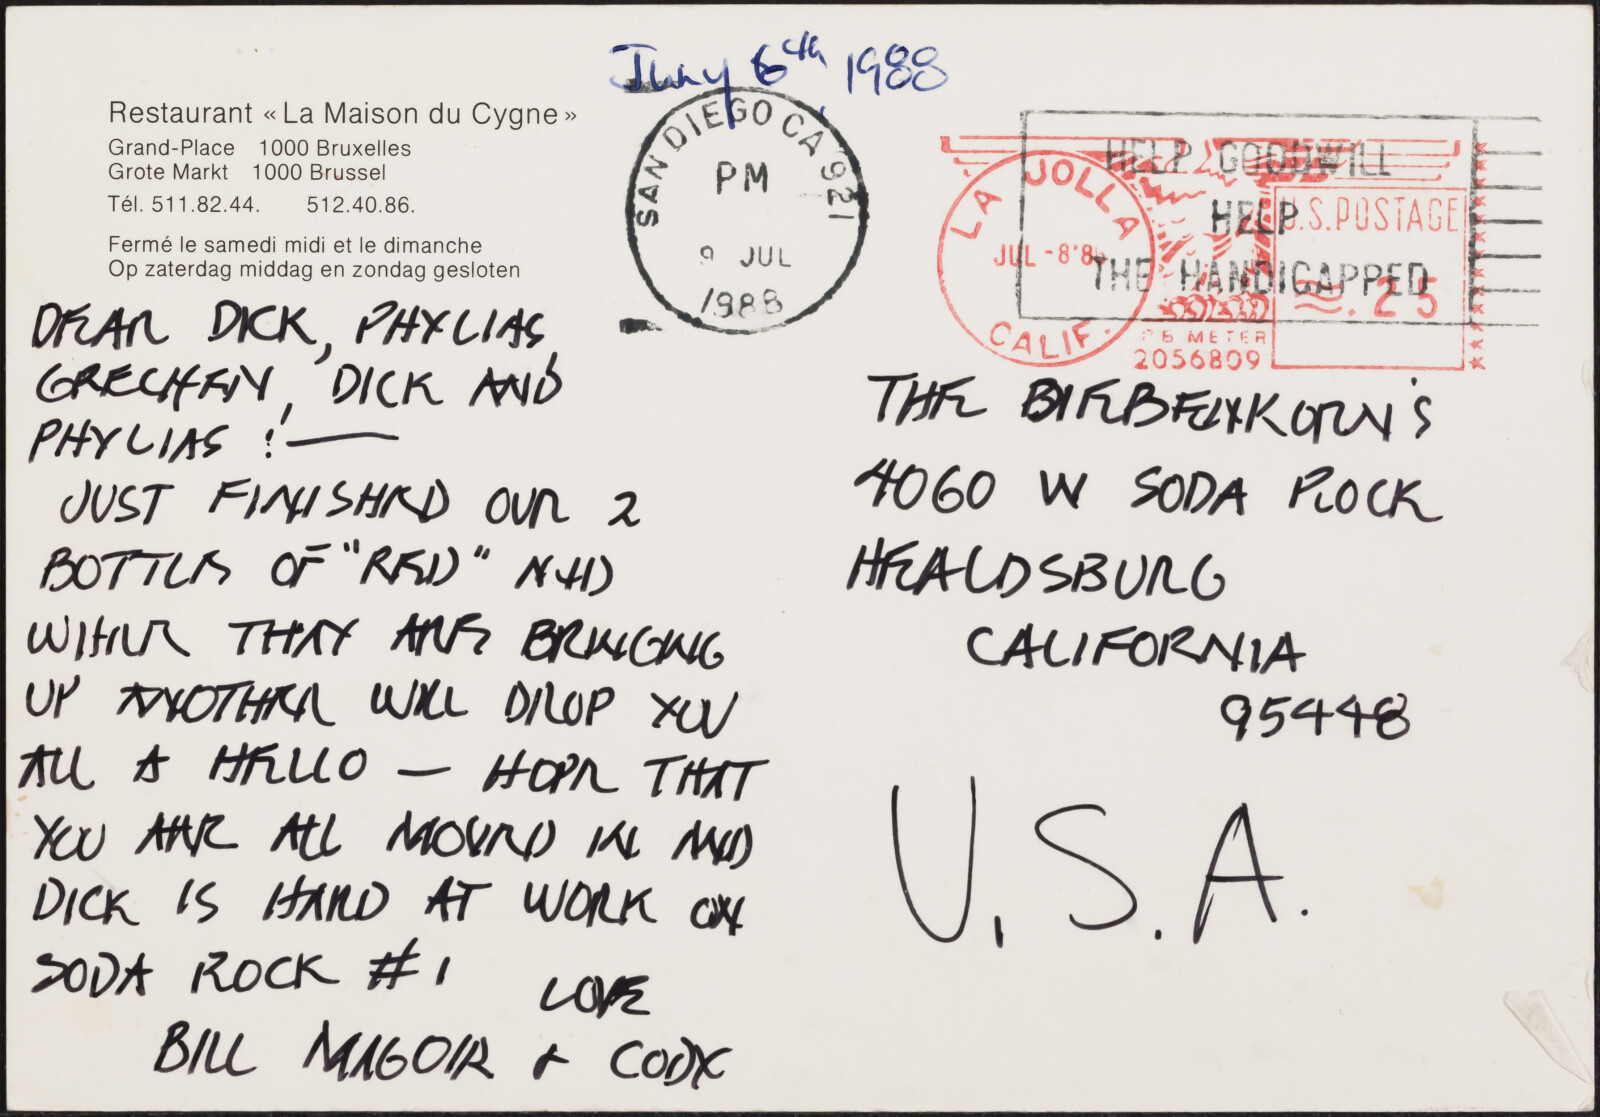 July 6th 1988
Restaurant « La Maison du Cygne »
Grand-Place 1000 Bruxelles
Grote Markt 1000 Brussel
Tél. 511.82.44. 512.40.86.
Fermé le samedi midi et le dimanche
Op zaterdag middag en zondag gesloten
SAN DIEGO CA 921
PM
9 JUL
1988
HELP GOODWILL
HELP
THE HANDICAPPED
LA JOLLA
JUL -8'8
CALIF.
U.S. POSTAGE
.25
PB METER
2056809
DEAR DICK, PHYLIAS,
GRECHEN, DICK AND
PHYLIAS !—
JUST FINISHED OUR 2
BOTTLES OF "RED" AND
WHILE THEY ARE BRINGING
UP ANOTHER WILL DROP YOU
ALL A HELLO — HOPE THAT
YOU ARE ALL MOVED IN AND
DICK IS HARD AT WORK ON
SODA ROCK #1
LOVE
BILL + CODY
THE DIEBENKORN'S
4060 W SODA ROCK
HEALDSBURG
CALIFORNIA
95448
U.S.A.